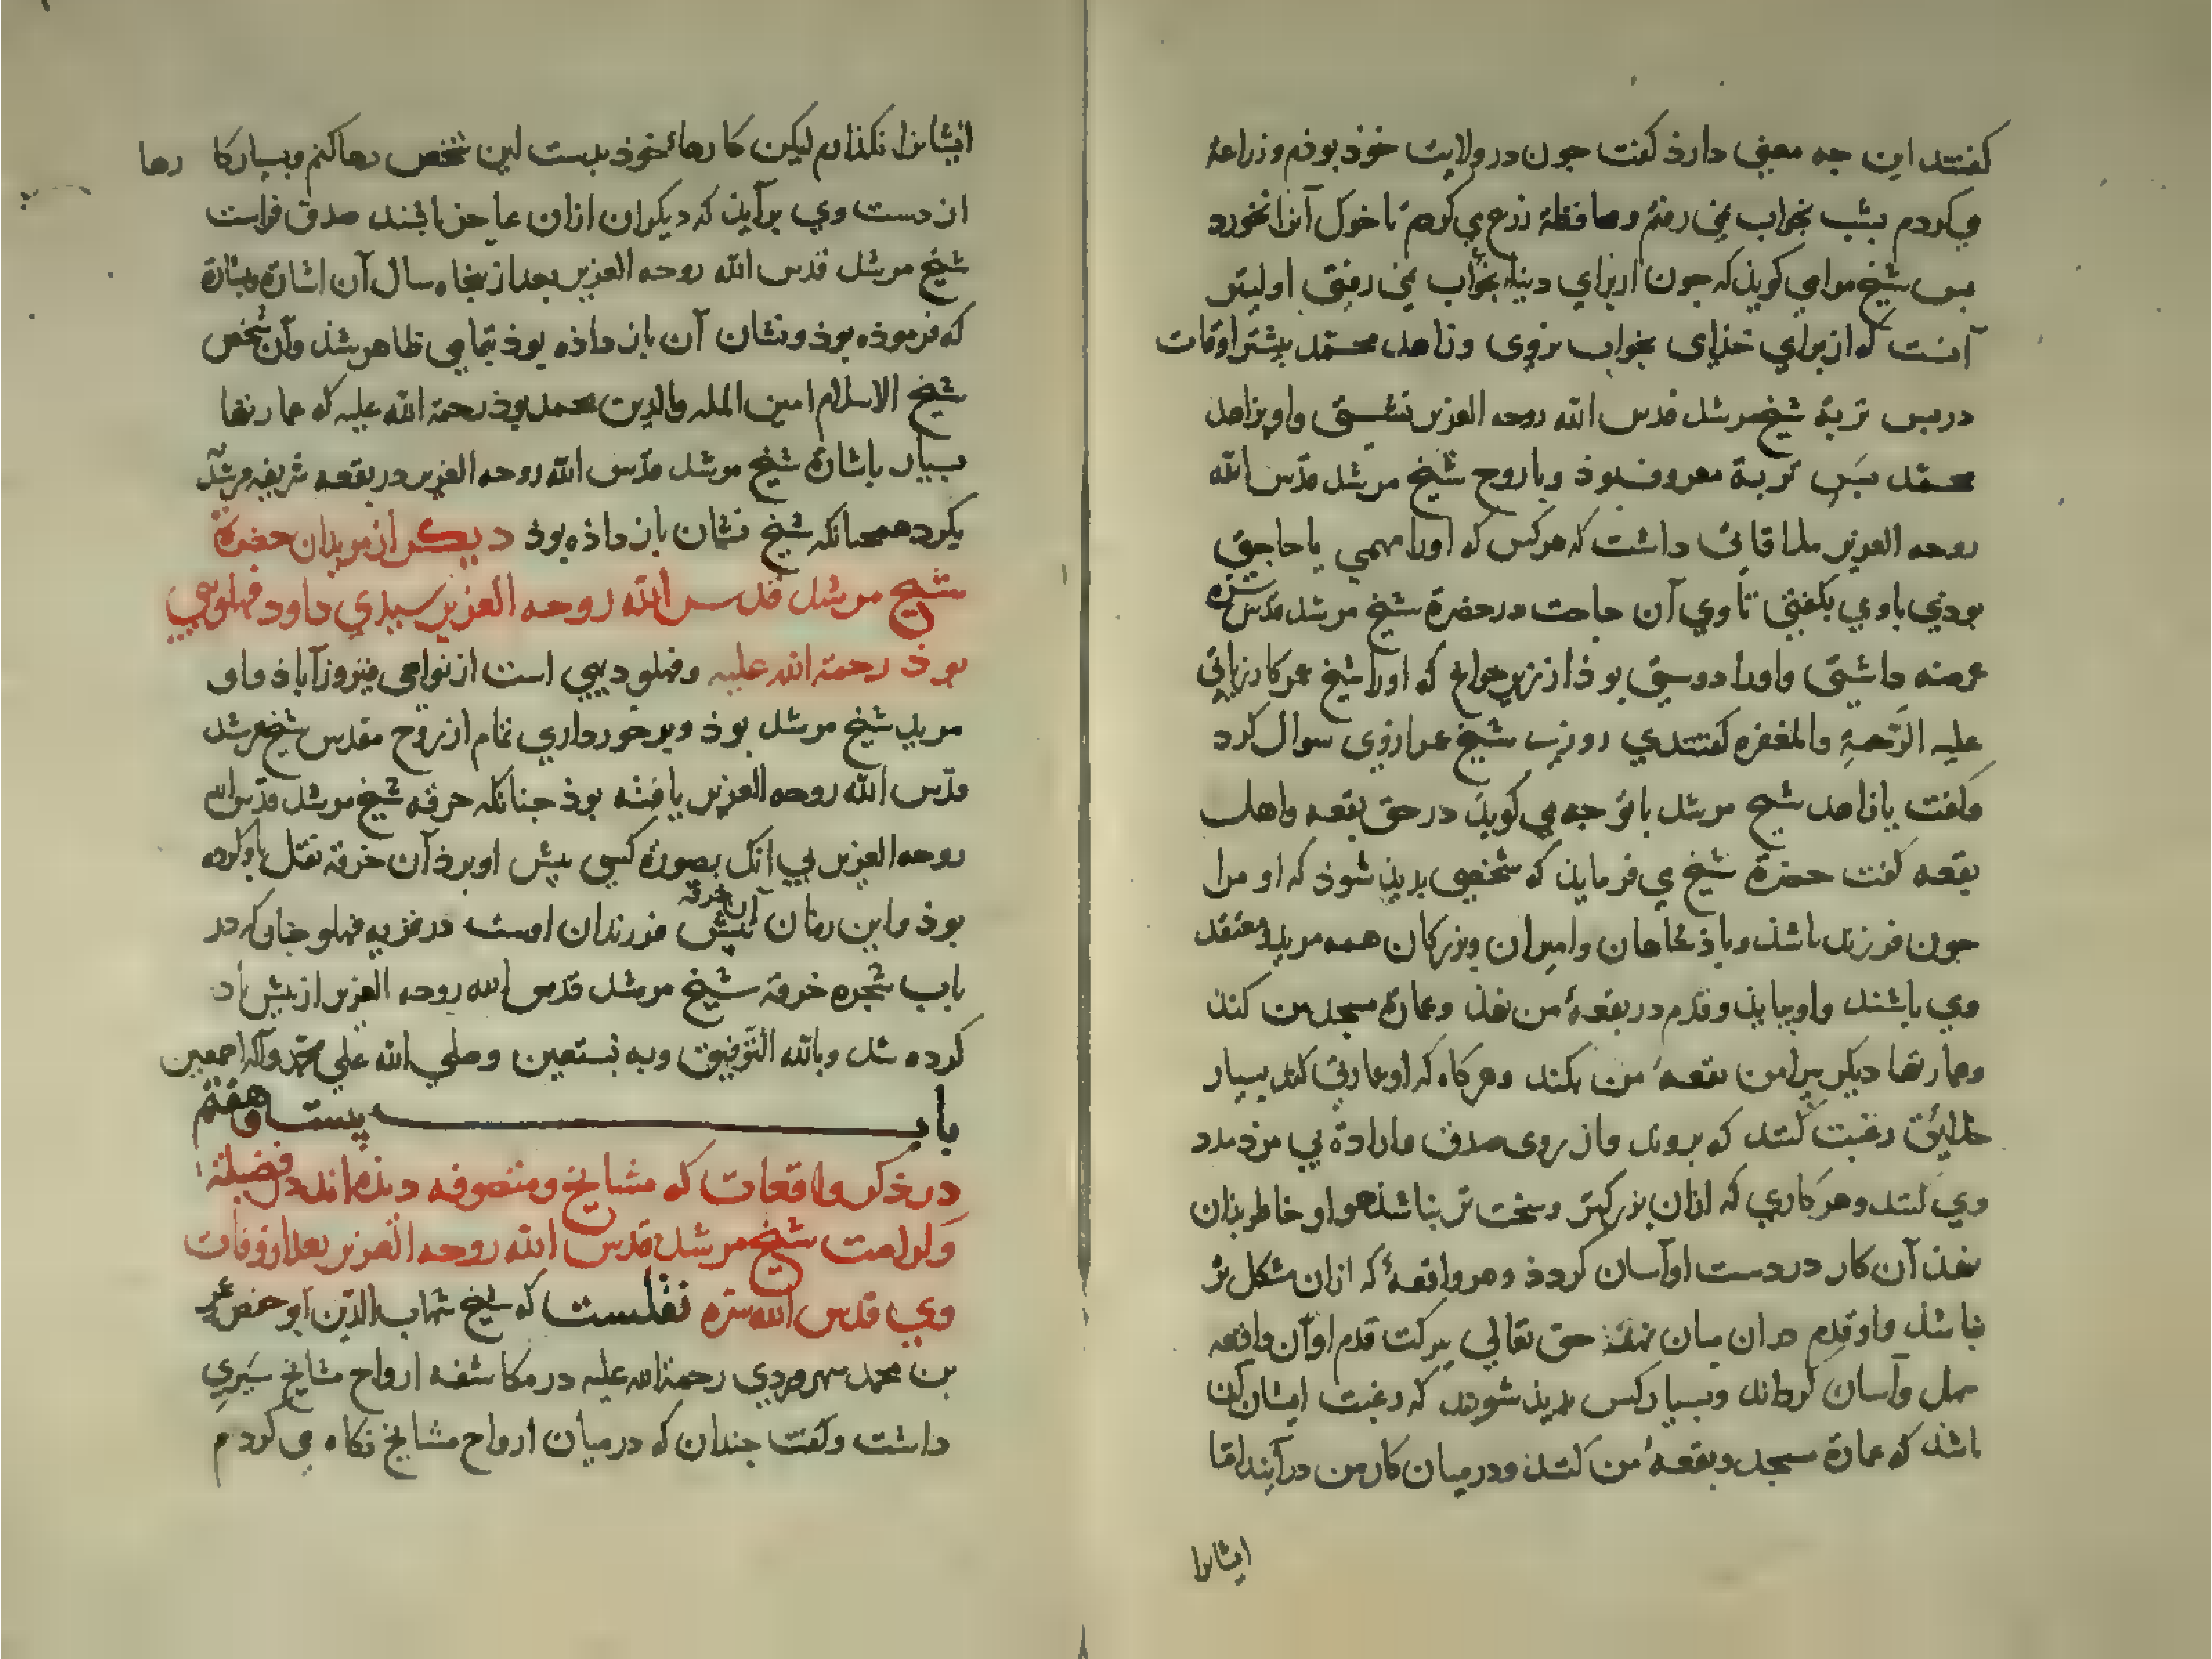 کفتند این جه معنی دارذ کفت جون در ولایت خوذ بوذم و زراعة
می‌کردم بشب بخواب نمی رفتم و محافظة زرع می کردم تا خوک آنرا نخورد
بس شیخ مرا می کویذ که جون از برای دنیا بخواب نمی رفتی اولیتر
آنست که از برای خذای بخواب نروی و زاهد محمد بیشتر اوقات
در بس تربة شیخ مرشد قدس الله روحه العزیز نشستی و او بزاهد
محمد بس تربة معروف بوذ و با روح شیخ مرشد قدس الله
روحه العزیز ملاقاتی داشت که هرکس که او را مهمی یا حاجتی
بوذی باوی بکفتی تا وی آن حاجت در حضرة شیخ مرشد قدس سره
عرضه داشتی و او را دوستی بوذ از زیر خواع که او را شیخ عمر کازرانی
علیه الرحمة والمغفره کفتندی روزی شیخ عمر از وی سوال کرد
و کفت یا زاهد شیخ مرشد با تو جه می کویذ در حق بقعه و اهل
بقعه کفت حضرة شیخ می فرمایذ که شخصی بدیذ شوذ که او مرا
جون فرزند باشذ و باذشاهان و امیران و بزرکان همه مرید و معتقد
وی باشند و او بیایذ و قدم در بقعهٔ من نهذ و عمارة مسجد من کنذ
و عمارتها دیکر بیرامن بقعهٔ من بکند و هرکاه که او عمارتی کند بسیار
خلایق رغبت کنند که بروند و از روی صدق و ارادة بی مزد مدد
وی کنند و هر کاری که از آن بزرکتر و سخت تر نباشذ جو او خاطر بذان
نهذ آن کار در دست او آسان کردذ و هر واقعهٔ که از آن مشکل تر
نباشد و او قدم در آن میان نهذ حق تعالی ببرکت قدم او آن واقعه
سهل و آسان کرداند و بسیار کس بدیذ شوند که رغبت ایشان آن
باشذ که عمارة مسجد و بقعهٔ من کنند و در میان کار من در آیند اما
ایشانرا
ایشانرا نکذارم لیکن کارهاء خوذ بدست این شخص رها کنم و بسیار کا رها
از دست وی برآیذ که دیکران از آن عاجز باشند صدق فراست
شیخ مرشد قدس الله روحه العزیز بعد از بنجاه سال آن اشارة و بشارة
که فرموذه بوذ و نشان آن باز داذه بوذ بتمامی ظاهر شذ و آن شخص
شیخ الاسلام امین المله والدین محمد بوذ رحمة الله علیه که عمارتها
بسیار باشارة شیخ مرشد قدس الله روحه العزیز در بقعه شریفه مرشد
بکرد همجنانکه شیخ نشان باز داذه بوذ دیکر از مریدان حضرة
شیخ مرشد قدس الله روحه العزیز سیدی داود فهلوهی
بوذ رحمة الله علیه و فهلو دیهی است از نواحی فیروزآباذ و او
مرید شیخ مرشد بوذ و برخورداری تمام از روح مقدس شیخ مرشد
قدس الله روحه العزیز یافته بوذ جنانکه خرقه شیخ مرشد قدس الله
روحه العزیز بی آنک بصورة کسی بیش او برذ آن خرقه نقل باو کرده
بوذ و این زمان آن خرقه بیش فرزندان اوست در قریه فهلو جنانکه در
باب شجره خرقه شیخ مرشد قدس الله روحه العزیز از بیش یاد
کرده شد وبالله التوفیق وبه نستعین وصلی الله علی محمد وآله اجمعین
باب بیست و هفتم
در ذکر واقعات که مشایخ و متصوفه دیذه‌اند در فضیلة
و کرامت شیخ مرشد قدس الله روحه العزیز بعد از وفات
وی قدس الله سره نقلست که شیخ شهاب الدین ابو حفص عمر
بن محمد سهروردی رحمة الله علیه در مکاشفه ارواح مشایخ سیری
داشت و کفت جندان که در میان ارواح مشایخ نکاه می کردم